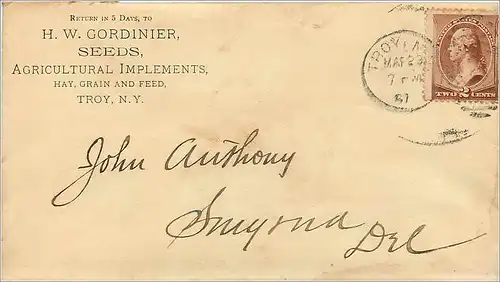 RETURN IN 5 DAYS, TO
H. W. GORDINIER,
SEEDS,
AGRICULTURAL IMPLEMENTS,
HAY, GRAIN AND FEED,
TROY, N.Y.
TROY
MAR
7 PM
87
TWO 2 CENTS
John Anthony
Smyrna
Del